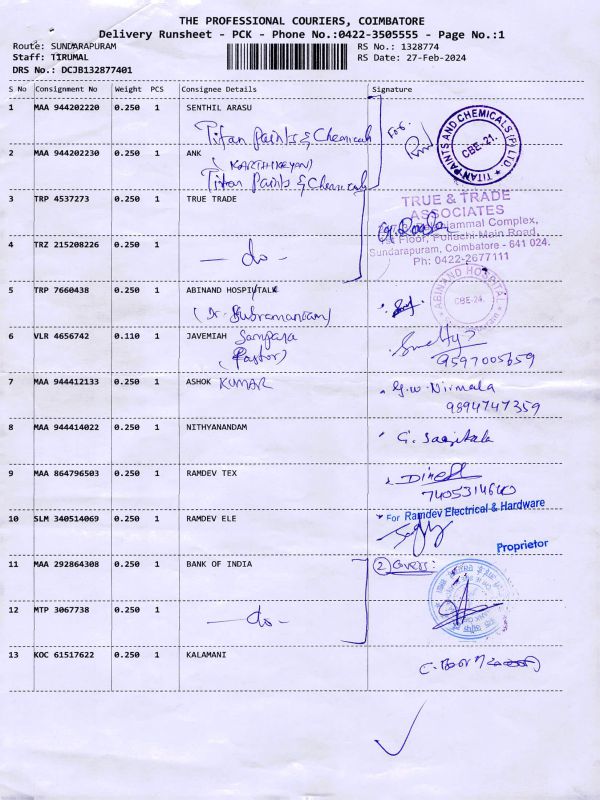 THE PROFESSIONAL COURIERS, COIMBATORE
Delivery Runsheet - PCK - Phone No.:0422-3505555 - Page No.:1
Route: SUNDARAPURAM
Staff: TIRUMAL
DRS No.: DCJB132877401
RS No.: 1328774
RS Date: 27-Feb-2024
S No Consignment No Weight PCS Consignee Details Signature
1 MAA 944202220 0.250 1 SENTHIL ARASU
Titan Paints & Chemicals
For
TITAN PAINTS AND CHEMICALS (P) LTD.
CBE-21.
2 MAA 944202230 0.250 1 ANK
(KARTHIKEYAN)
Titan Paints & Chemicals
3 TRP 4537273 0.250 1 TRUE TRADE
TRUE & TRADE
ASSOCIATES
Complex,
1st Floor, Pollachi Main Road,
Sundarapuram, Coimbatore - 641 024.
Ph: 0422-2677111
4 TRZ 215208226 0.250 1
- do -
5 TRP 7660438 0.250 1 ABINAND HOSPITALK
(Dr. Subramaniam)
ABINAND HOSPITAL
CBE-24.
6 VLR 4656742 0.110 1 JAVEMIAH
(Pastor)
9597005659
7 MAA 944412133 0.250 1 ASHOK KUMAR
G.W. Nirmala
9894747359
8 MAA 944414022 0.250 1 NITHYANANDAM
9 MAA 864796503 0.250 1 RAMDEV TEX
Dinesh
10 SLM 340514069 0.250 1 RAMDEV ELE
For Ramdev Electrical & Hardware
Proprietor
11 MAA 292864308 0.250 1 BANK OF INDIA
(2) Covers:
12 MTP 3067738 0.250 1
- do -
13 KOC 61517622 0.250 1 KALAMANI